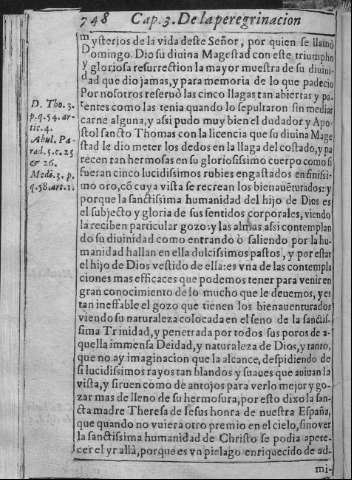 748 Cap. 3. De la peregrinacion
mysterios de la vida deste Señor, por quien se llamó
Domingo. Dio su diuina Magestad con este triumpho
y gloriosa resurrection la mayor muestra de su diuini-
dad que dio jamas, y para memoria de lo que padecio
Por nosotros reseruò las cinco llagas tan abiertas y pa-
tentes como las tenia quando lo sepultaron sin mediar
carne alguna, y assi pudo muy bien el dudador y Apo-
stol sancto Thomas con la licencia que su diuina Mage
stad le dio meter los dedos en la llaga del costado, y pa
recen tan hermosas en su gloriosissimo cuerpo como si
fueran cinco lucidissimos rubies engastados en finissi-
mo oro, cõ cuya vista se recrean los bienauẽturados: y
porque la sanctissima humanidad del hijo de Dios es
el subjecto y gloria de sus sentidos corporales, viendo
la reciben particular gozo: y las almas assi contemplan
do su diuinidad como entrando ò saliendo por la hu-
manidad hallan en ella dulcissimos pastos, y por estar
el hijo de Dios vestido de ella: es vna de las contempla
ciones mas efficaces que podemos tener para venir en
gran conocimiento de lo mucho que le deuemos, y es
tan ineffable el gozo que tienen los bienauenturados
viendo su naturaleza colocada en el seno de la sanctis-
sima Trinidad, y penetrada por todos sus poros de a-
quella immensa Deidad, y naturaleza de Dios, y tanto,
que no ay imaginacion que la alcance, despidiendo de
si lucidissimos rayos tan blandos y suaues que auiuan la
vista, y siruen como de antojos para verlo mejor y go-
zar mas de lleno de su hermosura, por esto dixo la san-
cta madre Theresa de Iesus honra de nuestra España,
que quando no vuiera otro premio en el cielo, sino ver
la sanctissima humanidad de Christo se podia apete-
cer el yr allà, porque es vn pielago enriquecido de ad-
mi-
D. Tho. 3.
p. q. 54. ar-
tic. 4.
Abul. Pa-
rad. 5. c. 25
& 26.
Medi. 3. p.
q. 58. art. 1.